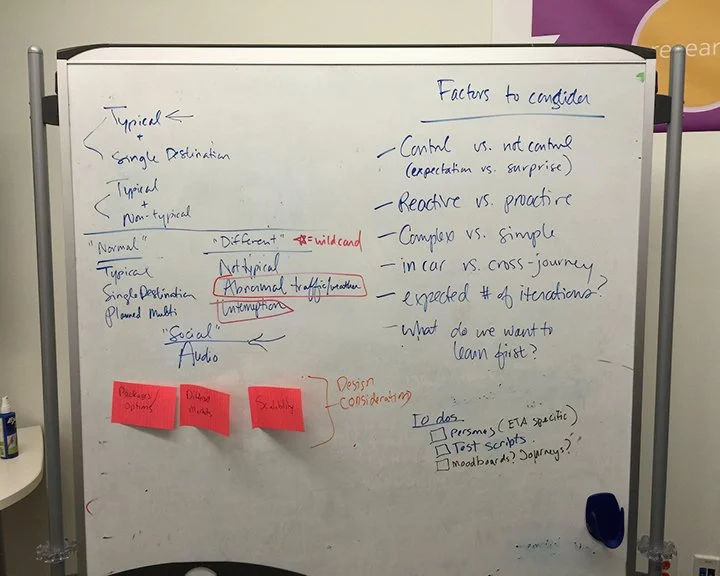 Typical
+
Single Destination
Typical
+
Non-typical
"Normal"
Typical
Single Destination
Planned Multi
"Different"
= wildcard
Not typical
Abnormal traffic/weather
Interruption
"Social"
Audio
Packages/
options
Scalability
Design
Considerations
Factors to consider
- Control vs. not control
(expectation vs. surprise)
- Reactive vs. proactive
- Complex vs. simple
- in car vs. cross-journey
- expected # of iterations?
- what do we want to
learn first?
To dos
Personas (ETA specific)
Test scripts
moodboards? Journeys?
resear